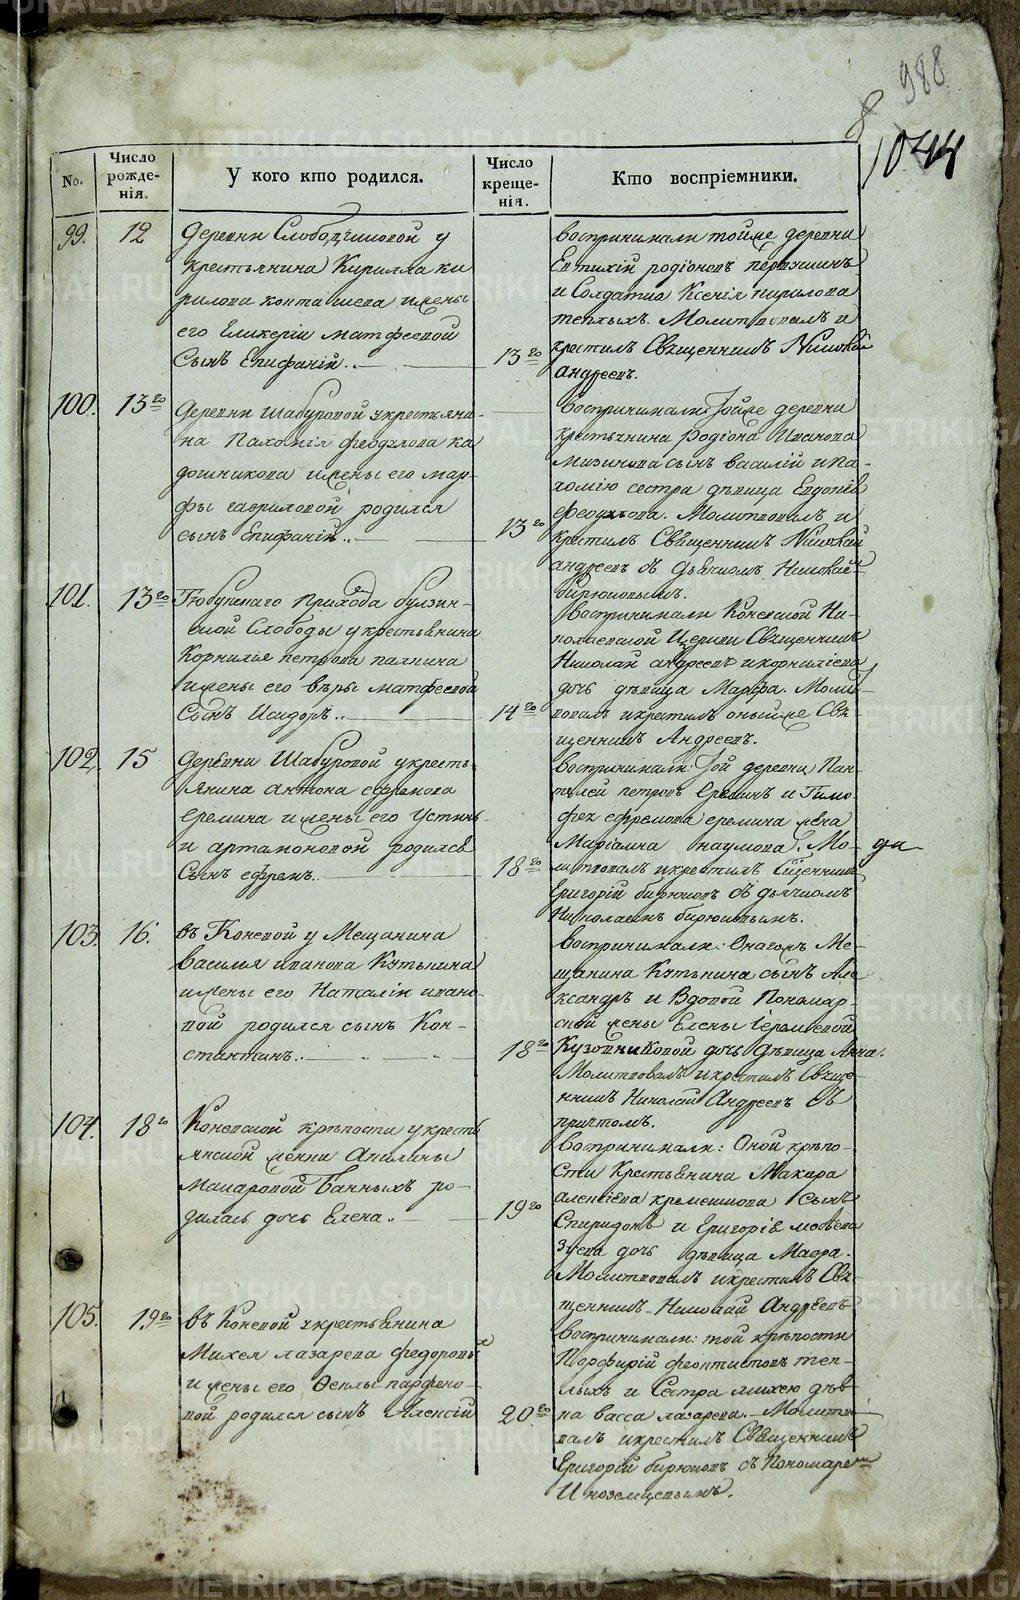 988
8
1044
No.
Число рожде-нія.
У кого кто родился.
Число креще-нія.
Кто воспріемники.
99.
12
Деревни Слободчиковой у
крестьянина Кирилла Ки
рилова жены
его Гликеріи Матфеевой
Сынъ Епифаній..
13го
воспринимали тойже деревни
Евтихій Родіоновъ Первушинъ
и Солдатка Ксенія Кирилова
теплыхъ. Молитвовалъ и
крестилъ Священникъ Николай
Андреевъ.
100.
13го
Деревни Шабуровой укрестьяни-
на Пахомія Феодулова Ка
дошникова ижены его Мар-
фы Гавриловой родился
сынъ Епифаній..
13го
воспринимали: Тойже деревни
крестьянина Родіона Иванова
Мизинова сынъ Василій и Па-
хомію сестра дѣвица Евдокія
Феодулова. Молитвовалъ и
крестилъ Священникъ Николай
Андреевъ съ Дьячкомъ Николаемъ
Бирюковымъ.
101.
13го
Тюбукскаго Прихода Булзин-
ской Слободы укрестьянина
Корнилія Петрова Палкина
ижены его Вѣры Матфеевой
Сынъ Исидоръ..
14го
Воспринимали Коневской Ни-
колаевской Церкви Священникъ
Николай Андреевъ икорниліева
дочь дѣвица Марфа. Молит-
вовалъ икрестилъ оныйже Свя-
щенникъ Андреевъ.
102.
15
Деревни Шабуровой укресть
янина Антона Ефремова
Еремина ижены его Устинь
и Артамоновой родился
Сынъ Ефремъ.
18го
воспринимали: Той деревни Пан-
телей Петровъ Ереминъ и Тимо
фея Ефремова Еремина жена
Маріамна Наумова. Мо-
литвовалъ икрестилъ Священникъ
Григорій Бирюковъ съ дьячкомъ
Николаемъ Бирюковымъ.
103.
16.
въ Коневой у Мещанина
Василья Иванова Кутьнина
ижены его Наталіи Ивано
вой родился сынъ Кон-
стантинъ..
18го
воспринимали: Онагожъ Ме-
щанина Кутьнина сынъ Але
ксандръ и Вдовой Пономар-
ской жены Елены Іеремѣевой
Кузовниковой дочь дѣвица Анна.
Молитвовалъ икрестилъ Свяще-
нникъ Николай Андреевъ съ
причтомъ.
104.
18го
Коневской крѣпости укресть
янской женки Акилины
Макаровой Банныхъ ро-
дилась дочь Елена..
19го
воспринимали: Оной крѣпо-
сти Крестьянина Макара
Алексіева сынъ
Спиридонъ и Григорія
Зуева дочь дѣвица Мавра.
Молитвовалъ икрестилъ Свя-
щенникъ Николай Андреевъ
105.
19го
въ Коневой укрестьянина
Михея Лазарева Федоровы
и жены его Ѳеклы Парфено-
вой родился сынъ Алексій
20го
воспринимали: той крѣпости
Порфирій Феоктистовъ теп-
лыхъ и Сестра Михею дѣв-
ка Васса Лазарева. Молитво
валъ икрестилъ Священникъ
Григорій Бирюковъ съ Пономаремъ
Иноземцевымъ.